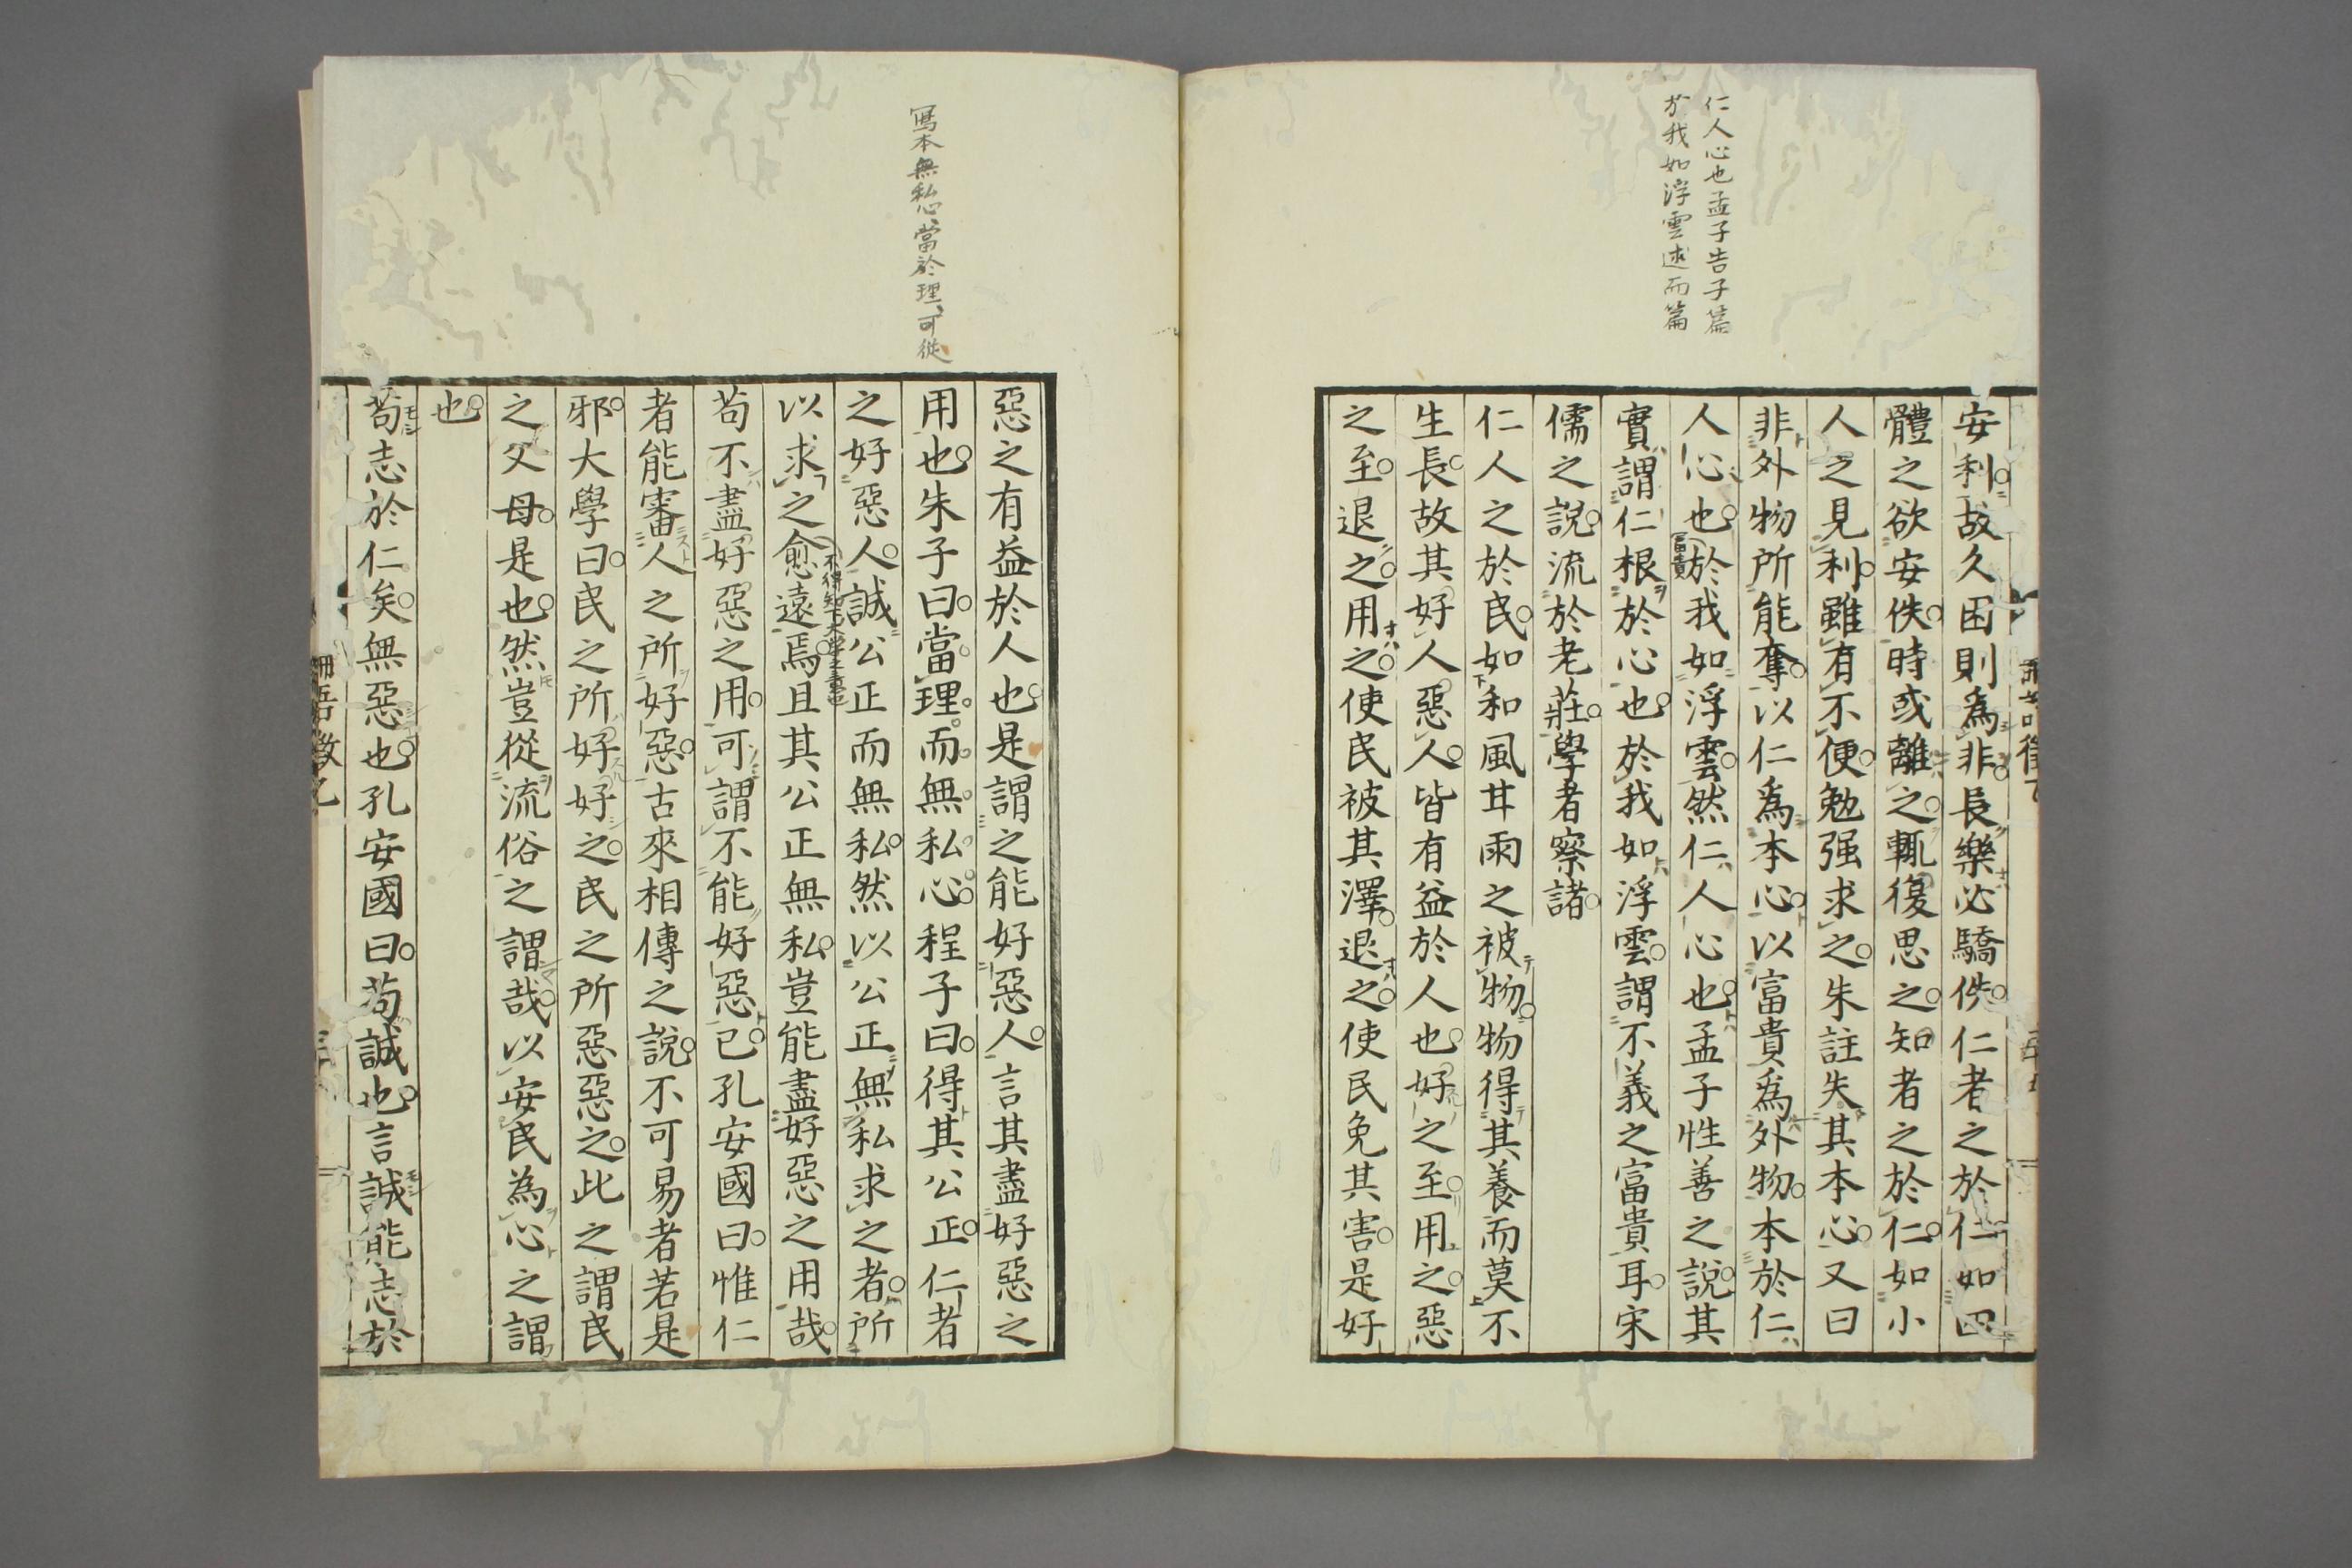 仁人心也孟子告子篇
於我如浮雲述而篇
安利故久困則為非長樂必驕佚仁者之於仁如四
體之欲安佚時或離之輒復思之知者之於仁如小
人之見利雖有不便勉强求之朱註失其本心又曰
非外物所能奪以仁爲本心以富貴爲外物本於仁
人心也富貴於我如浮雲然仁人心也孟子性善之說其
實謂仁根於心也於我如浮雲謂不義之富貴耳宋
儒之說流於老莊學者察諸
仁人之於民如和風甘雨之被物物得其養而莫不
生長故其好人惡人皆有益於人也好之至用之惡
之至退之用之使民被其澤退之使民免其害是好
寫本無私心當於理可從
惡之有益於人也是謂之能好惡人言其盡好惡之
用也朱子曰當理而無私心程子曰得其公正仁者
之好惡人誠公正而無私然以公正無私求之者所
以求之愈遠焉且其公正無私豈能盡好惡之用哉
苟不盡好惡之用可謂不能好惡已孔安國曰惟仁
者能審人之所好惡古來相傳之說不可易者若是
邪大學曰民之所好好之民之所惡惡之此之謂民
之父母是也然豈從流俗之謂哉以安民為心之謂
也
苟志於仁矣無惡也孔安國曰苟誠也言誠能志於